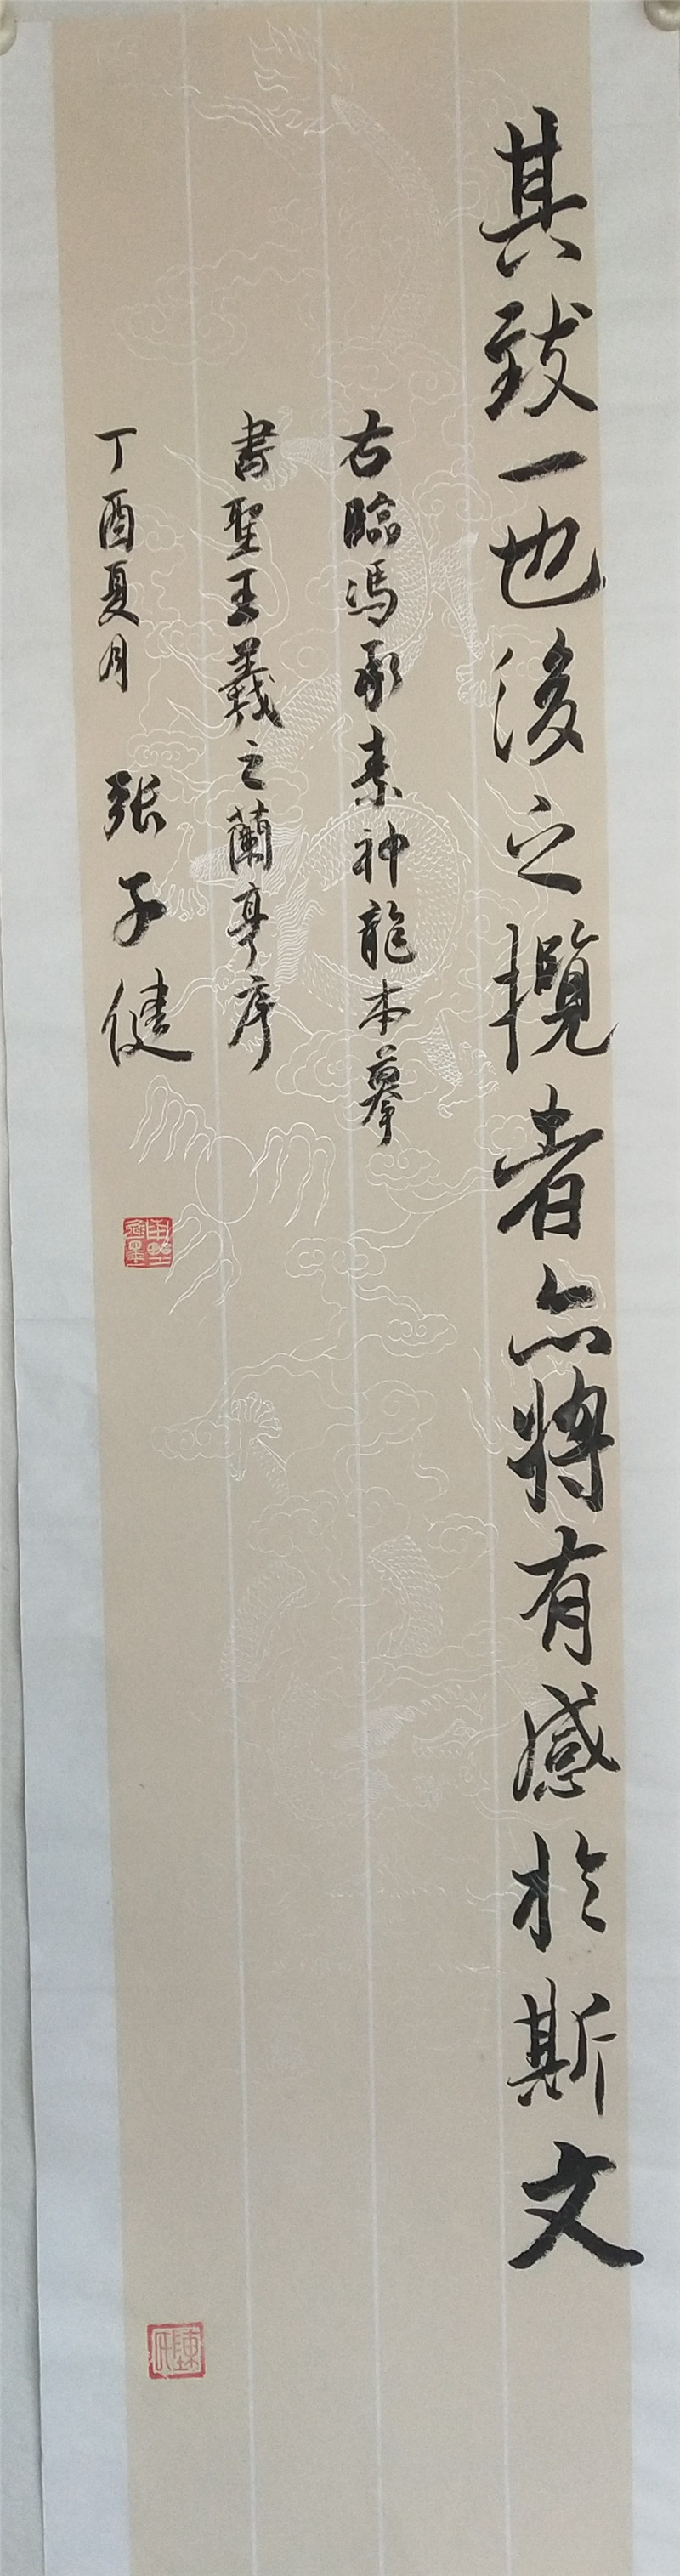 其致一也後之攬者亦將有感於斯文
右臨馮承素神龍本摹
書聖王羲之蘭亭序
丁酉夏月 張子健